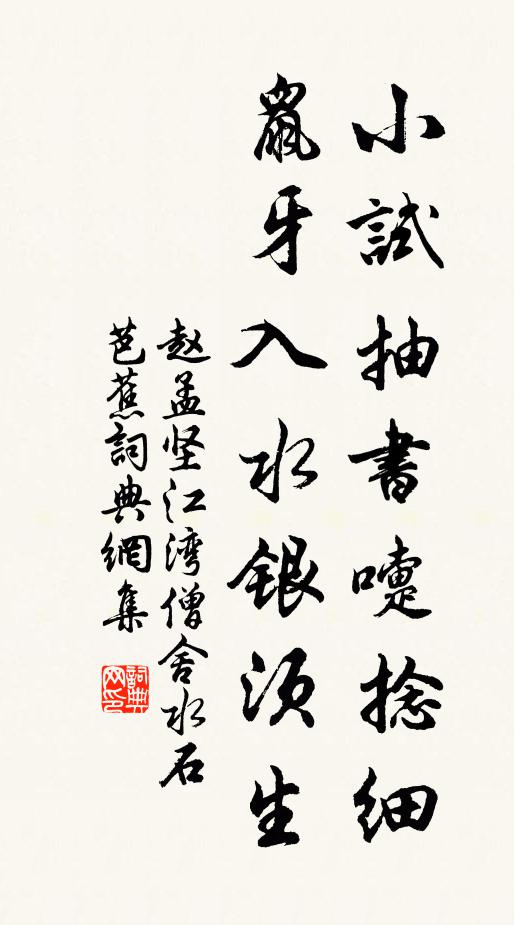 小試抽書嚏捻細
鼠牙入水銀须生
赵孟坚江湾僧舍水石
芭蕉詞典網集
詞典网印